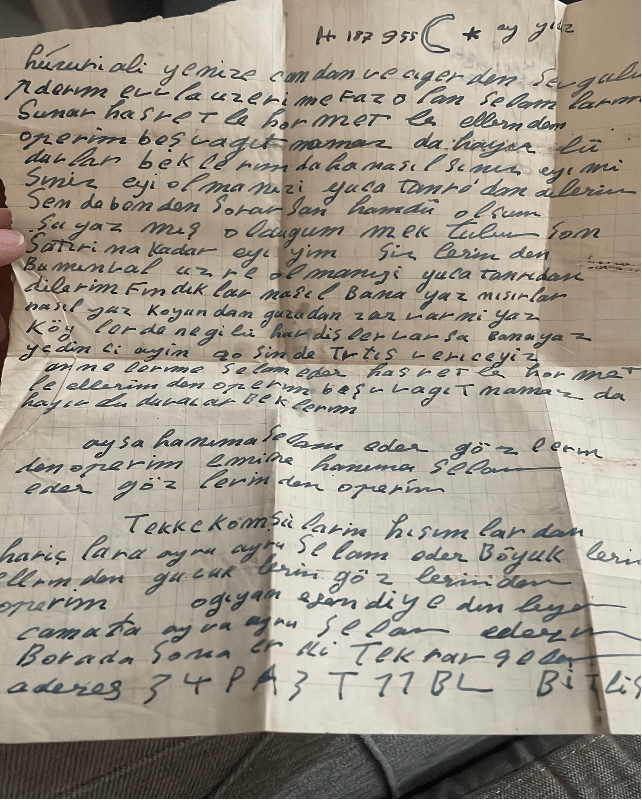 H 187 955 ☾ * ay yıız
húzuri ali yenize candan ve cıger den Sevgulı
Pderım evvla uzerı me Fazo lan Selam larm
Sunar hasret le hor met le ellerındem
operim beş vagıt namaz da hayır lü
duılar bek lerım daha nasıl Sınız eyı mi
Sınız eyi ol ma nızı yuca tanrı dan dılerım
Sen de ben den Sorar San hamdü olsum
Şu yaz mış oldugum mek tubun Son
Satırı na kadar eyi yim Siz lerın den
Bu mınval uz re ol manızı yuca tanrıdan
dılerım Fındık lar nasıl Bana yaz mısırlar
nasıl yaz koyundan guzudan zar var mı yaz
Köy lerde negi lü hardişler varsa Bana yaz
yedin ci ayin 20 Sinde Trtıs vereceyiz
anne lerıme Selam eder hasret le hor met
le ellerim den operım beş vagıT namaz da
hayır du duvalar Beklerım
aysa hanıma Selam eder göz lerm
den operim emine hanıma Selam
eder göz lerın den operim
Tekke komsü larim hısım lardan
hariç lara ayrı ayrı Selam eder Böyuk lerın
ellerın den guçuk lerin göz lerinden
operim ogıyan efendiye dınleyen
camata ayrı ayrı Selam ederım
Borada Sona er di Tekrar gelam
aderes 3 4 PA 3 T 11 BL BiTlis